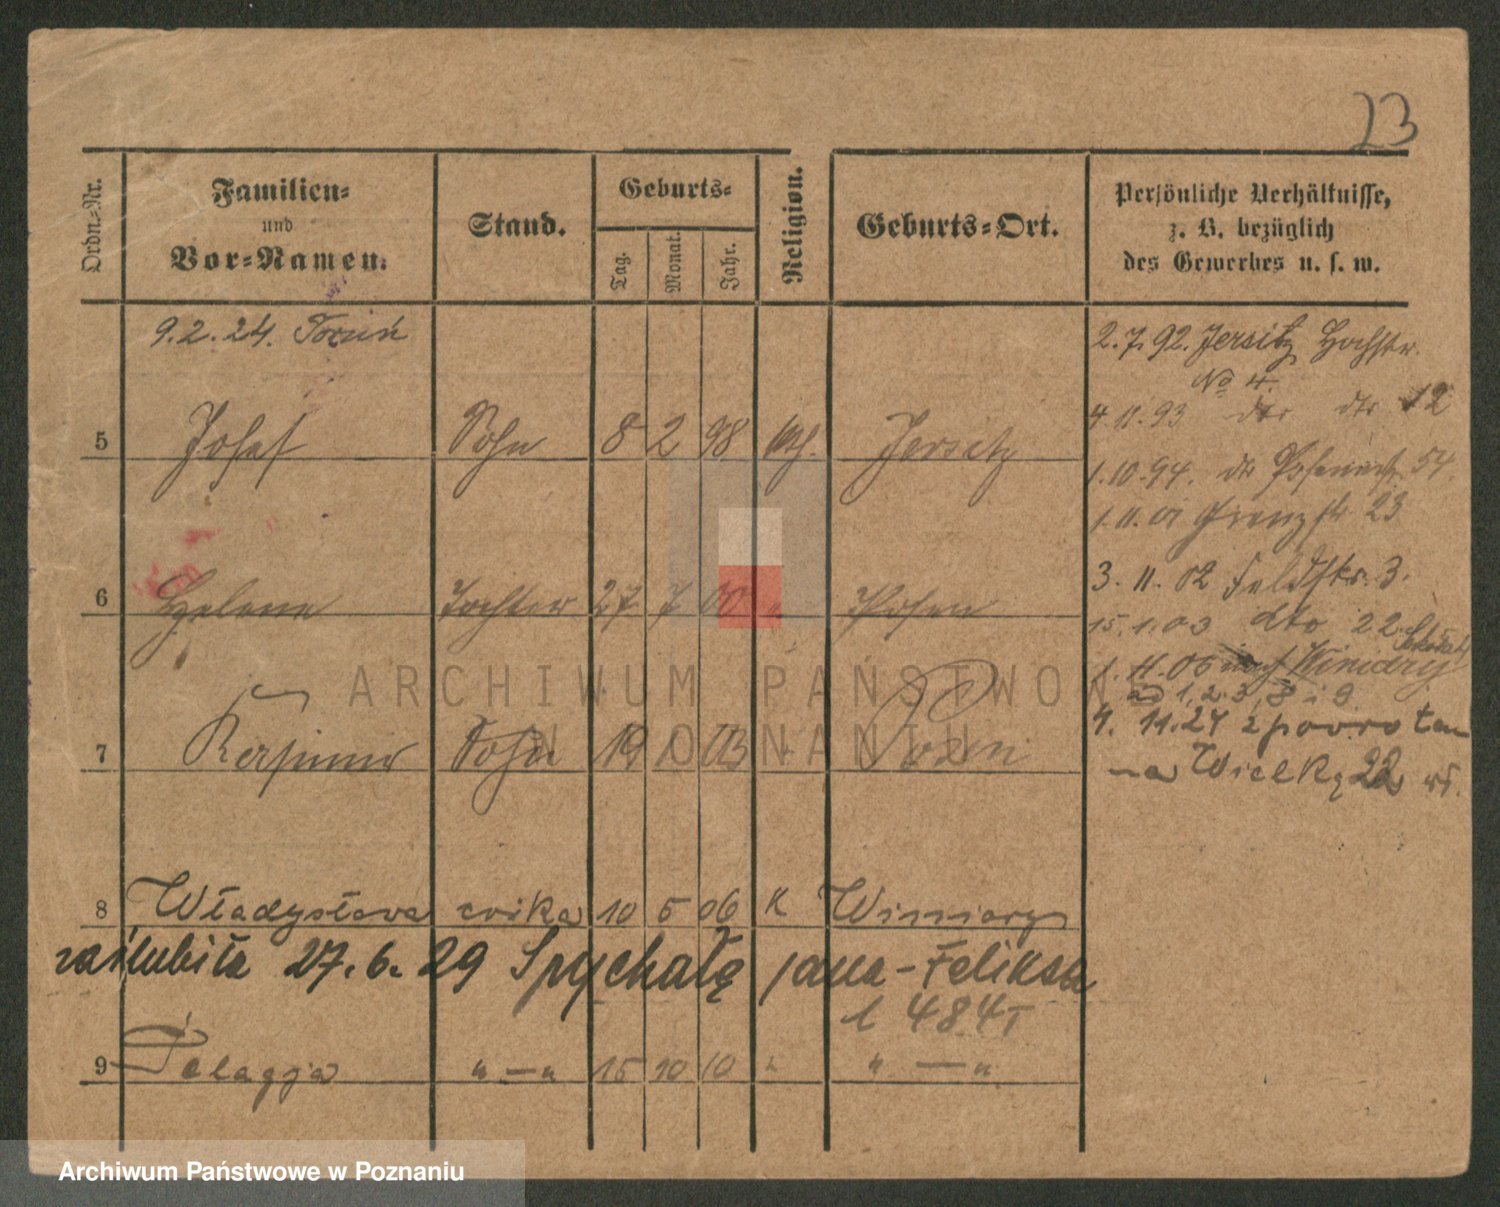 23
Ordn.-Nr.
Familien-
und
Vor-Namen.
Stand.
Geburts-
Tag.
Monat.
Jahr.
Religion.
Geburts-Ort.
Persönliche Verhältnisse,
z. B. bezüglich
des Gewerbes u. s. w.
9.2.24. Toruń
2.7.92. Jersitz Hochstr.
No 4.
4.11.93 dto dto 12
5 Josef Sohn 8 2 98 kth. Jersitz
1.10.94. dto Posenerstr. 54
1.11.01 Grenzstr. 23
3.11.02 Feldstr. 3.
6 Helene Tochter 27 7 00 " Posen
15.1.03 dto 22
1.11.06 nach Winiary
ad 1, 2, 3, 8 i 9
4. 11.24 z powrotem
7 Sohn 19 1 03 " Posen
na Wielką 22
8 Władysława córka 10 5 06 K Winiary
zaślubiła 27.6.29 Spychałę Jana-Feliksa
1 484T
9 Pelagja " — " 15 10 10 " " — "
ARCHIWUM PAŃSTWOWE
W POZNANIU
Archiwum Państwowe w Poznaniu